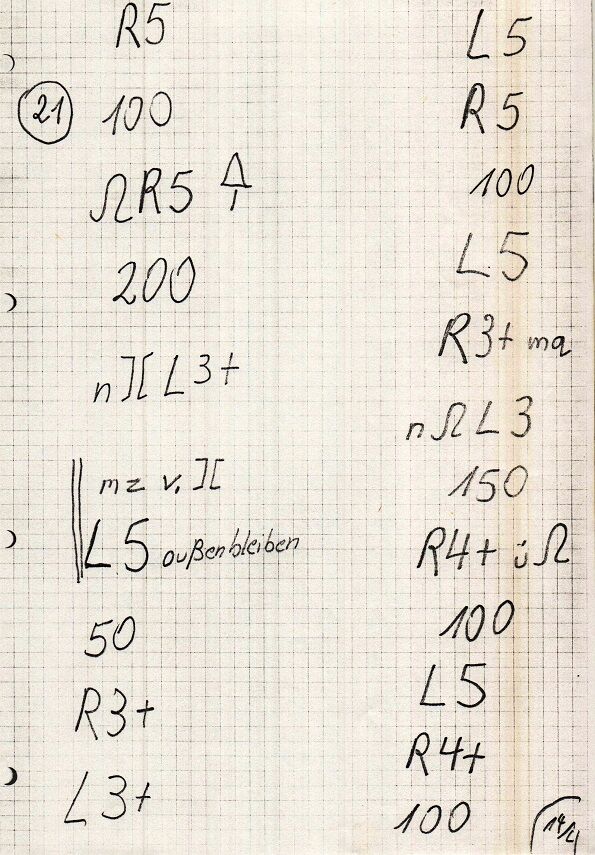 R5
21 100
ΩR5
200
n ][ L3+
mz v. ][
L5 außenbleiben
50
R3+
L3+
L5
R5
100
L5
R3+ mq
nΩL3
150
R4+ üΩ
100
L5
R4+
100